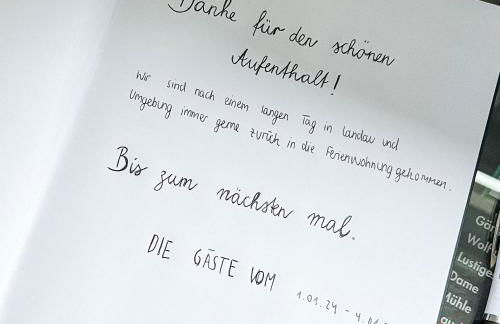 Danke für den schönen
Aufenthalt!
Wir sind nach einem langen Tag in Landau und
Umgebung immer gerne zurück in die Ferienwohnung gekommen.
Bis zum nächsten mal.
DIE GÄSTE VOM
1.01.24 - 4.01
Wolf
Lustige
Dame
Mühle